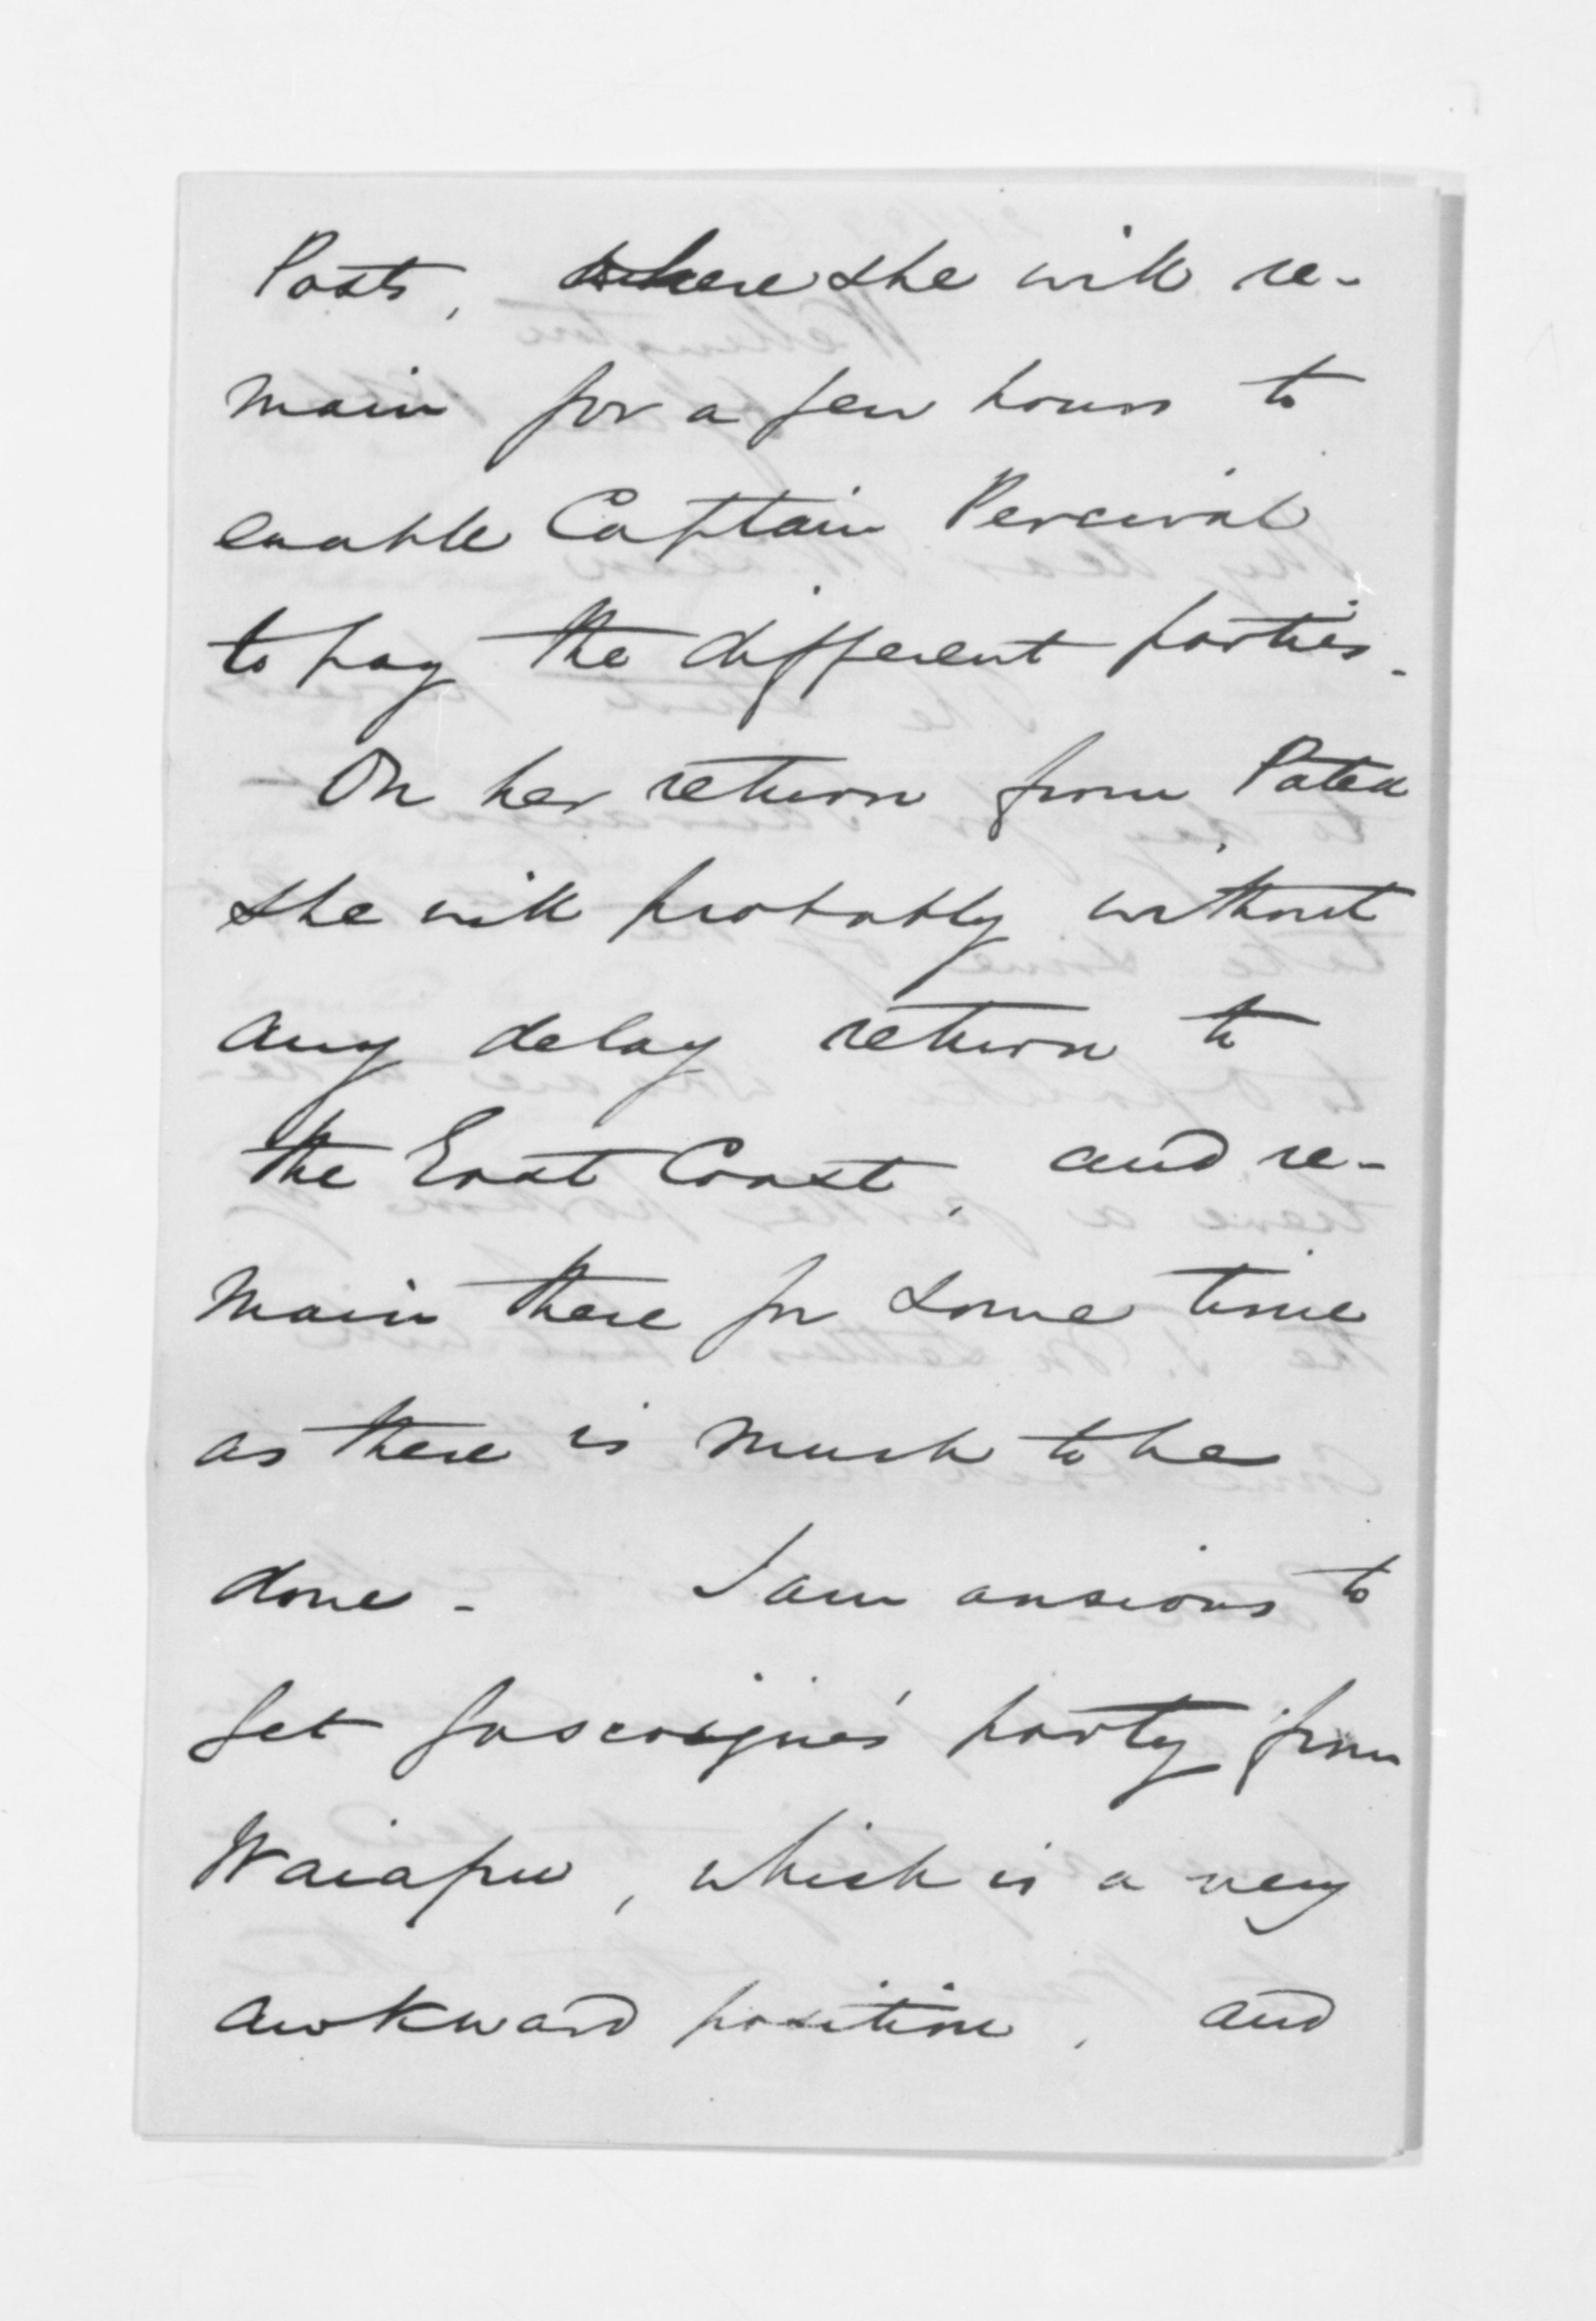 Posts, where she will re-
main for a few hours to
enable Captain Percival
to pay the different parties.
On her return from Patea
she will probably without
any delay return to
the East Coast, and re-
main there for some time
as there is much to be
done - I am anxious to
get Gascoigne's party from
Waiapu, which is a very
awkward position, and